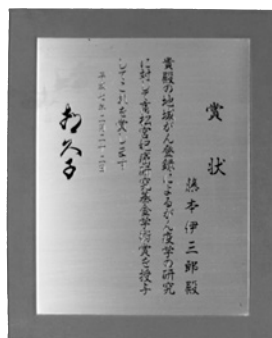 賞状
藤本伊三郎殿
貴殿の地域がん登録によるがん疫学の研究
に対し高松宮妃癌研究基金学術賞を授与
してこれを賞します
喜久子